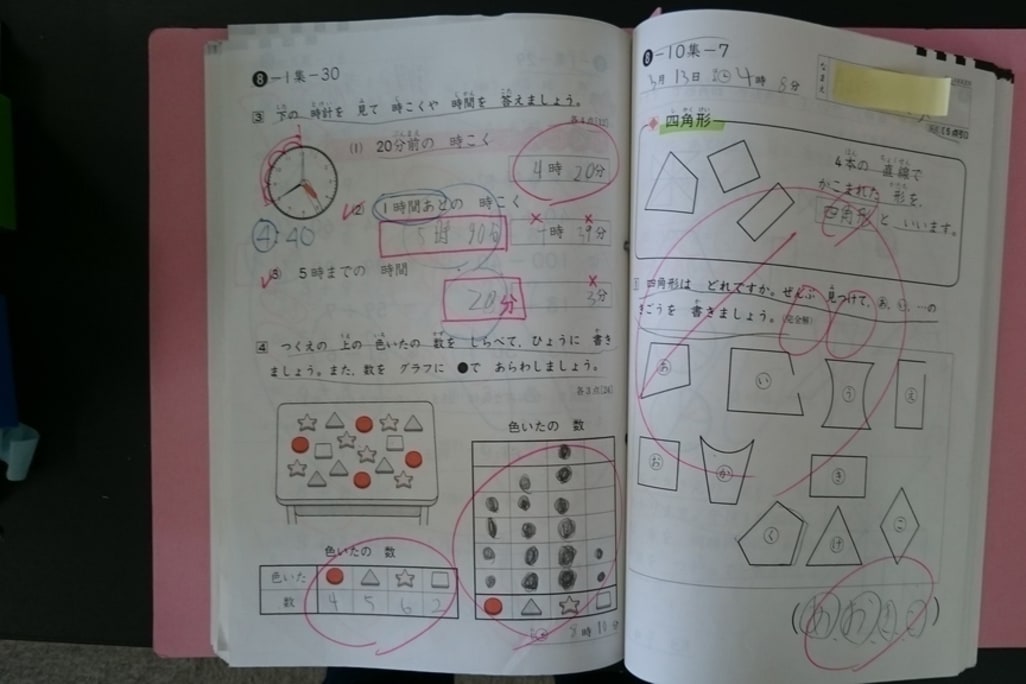 8-1集-30
3 下の 時計を 見て 時こくや 時間を 答えましょう。
(1) 20分前の 時こく
4時 20分
(2) 1時間あとの 時こく
5時
時 39分
4:40
(3) 5時までの 時間
20分
3分
4 つくえの 上の 色いたの 数を しらべて, ひょうに 書き
ましょう。また, 数を グラフに ●で あらわしましょう。
各3点[24]
色いたの 数
色いたの 数
色いた
数 4 5 6 2
8時10分
8-10集-7
3月 13日 4時 8分
なまえ
四角形
4本の 直線で
かこまれた 形を,
四角形 と いいます。
1 四角形は どれですか。ぜんぶ 見つけて, あ, い, …の
きごうを 書きましょう。(完全解)
あ い う え
お か き
く け こ
(あ, お, き, こ)